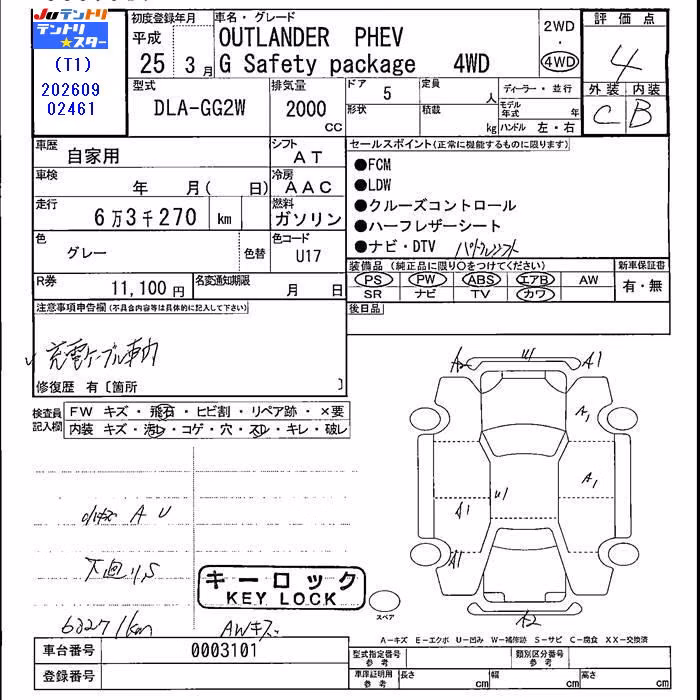 JUテントリ
テントリ
★スター
(T1)
202609
02461
初度登録年月
平成
25 3月
車名・グレード
OUTLANDER PHEV
G Safety package 4WD
2WD
・
4WD
評価点
4
外装 内装
C B
型式
DLA-GG2W
排気量
2000
cc
ドア
5
形状
定員
人
積載
kg
ディーラー・並行
モデル年式 年
ハンドル 左・右
車歴
自家用
シフト
AT
車検
年 月( 日)
冷房
AAC
走行
6万3千270 km
燃料
ガソリン
色
グレー
色替
色コード
U17
R券
11,100円
名変通知期限
月 日
セールスポイント(正常に機能するものに限ります)
●FCM
●LDW
●クルーズコントロール
●ハーフレザーシート
●ナビ・DTV パドルシフト
装備品(純正品に限り○をつけてください)
新車保証書
PS PW ABS エアB AW
SR ナビ TV カワ
有・無
後日品
注意事項申告欄(不具合内容等は具体的に記入して下さい)
充電ケーブル車内
修復歴 有〔箇所 〕
検査員
記入欄
FW キズ・飛石・ヒビ割・リペア跡・×要
内装 キズ・汚レ・コゲ・穴・スレ・キレ・破レ
小キズ A U
下回りS
63271km
AWキズ
キーロック
KEY LOCK
A2 U1 A1
A1
A1
U1
A1
A1
A2
スペア
A-キズ E-エクボ U-凹み W-補修跡 S-サビ C-腐食 XX-交換済
車台番号
0003101
登録番号
型式指定番号
参考
類別区分番号
参考
車庫証明用
参考
長さ cm
幅 cm
高さ cm